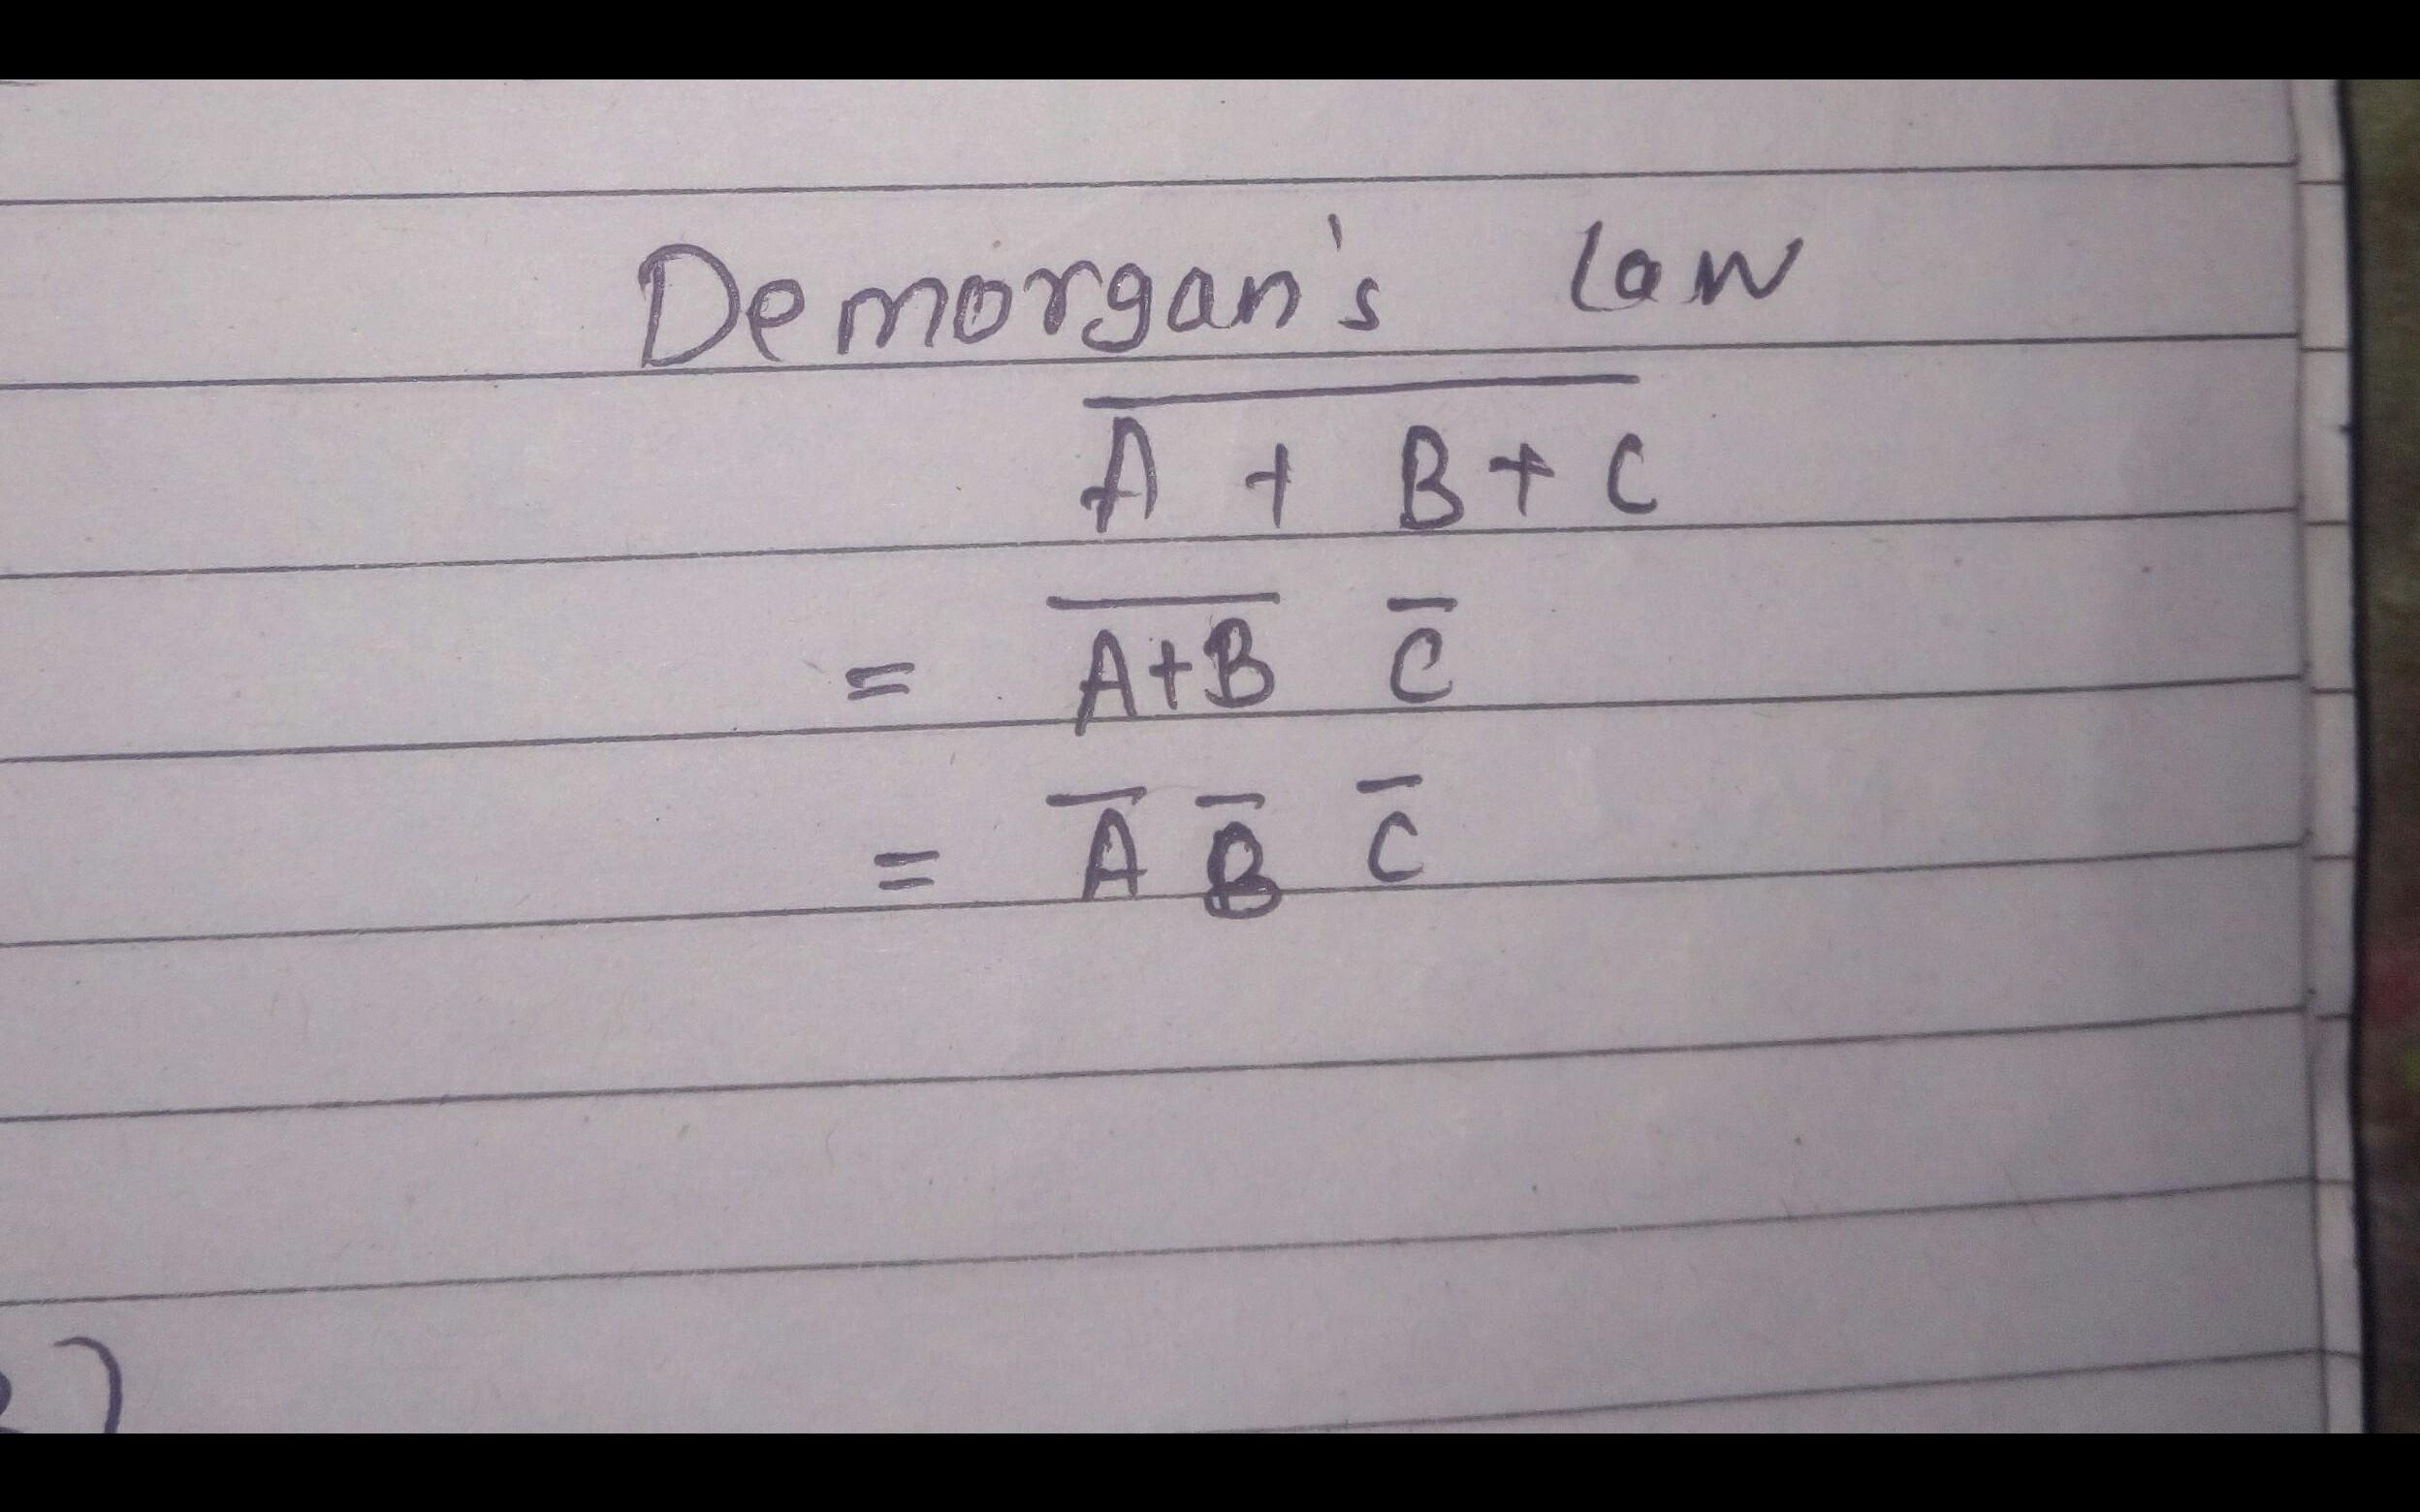 Demorgan's law
\overline{A + B + C}
= \overline{A+B} \overline{C}
= \overline{A} \overline{B} \overline{C}
)